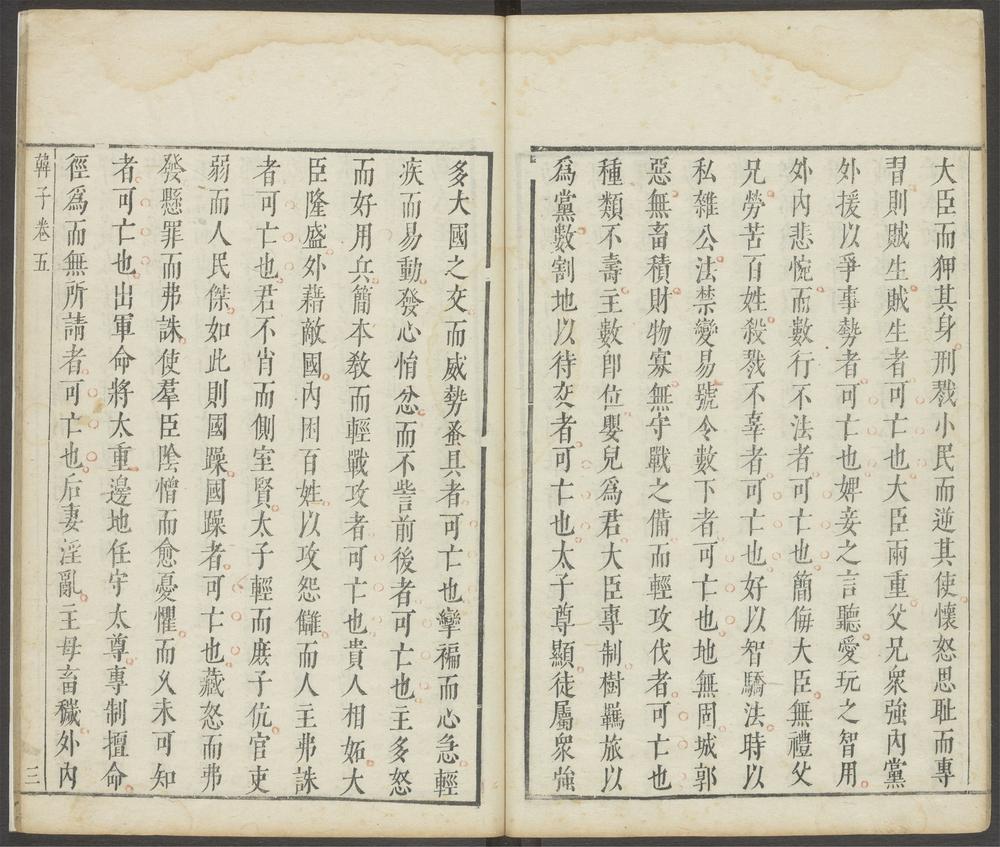 大臣而狎其身刑戮小民而逆其使懷怒思耻而專
習則賊生賊生者可亡也大臣兩重父兄衆強内黨
外援以爭事勢者可亡也婢妾之言聽愛玩之智用
外内悲惋而數行不法者可亡也簡侮大臣無禮父
兄勞苦百姓殺戮不辜者可亡也好以智驕法時以
私雜公法禁變易號令數下者可亡也地無固城郭
惡無畜積財物寡無守戰之備而輕攻伐者可亡也
種類不壽主數卽位嬰兒爲君大臣專制樹羈旅以
爲黨數割地以待交者可亡也太子尊顯徒屬衆強
多大國之交而威勢蚤具者可亡也攣褊而心急輕
疾而易動發心悁忿而不訾前後者可亡也主多怒
而好用兵簡本敎而輕戰攻者可亡也貴人相妬大
臣隆盛外藉敵國内困百姓以攻怨讎而人主弗誅
者可亡也君不肖而側室賢太子輕而庶子伉官吏
弱而人民傑如此則國躁國躁者可亡也藏怒而弗
發懸罪而弗誅使羣臣陰憎而愈憂懼而久未可知
者可亡也出軍命將太重邊地任守太尊專制擅命
徑爲而無所請者可亡也后妻淫亂主母畜穢外内
韓子卷五 三